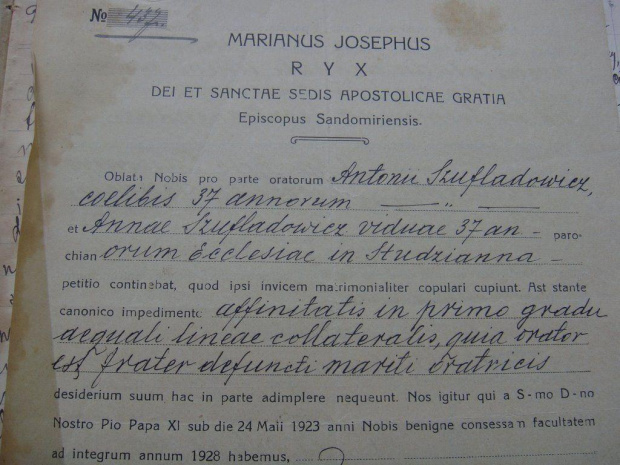 № 437.
MARIANUS JOSEPHUS
RYX
DEI ET SANCTAE SEDIS APOSTOLICAE GRATIA
Episcopus Sandomiriensis.
Oblata Nobis pro parte oratorum Antonii Szufladowicz,
coelibis 37 annorum — „ —
et Annae Szufladowicz viduae 37 an- paro-
chian orum Ecclesiae in Studzianna -
petitio continebat, quod ipsi invicem matrimonialiter copulari cupiunt. Ast stante
canonico impedimento affinitatis in primo gradu
aequali lineae collateralis, quia orator
est frater defuncti mariti oratricis
desiderium suum hac in parte adimplere nequeunt. Nos igitur qui a S-mo D-no
Nostro Pio Papa XI sub die 24 Maii 1923 anni Nobis benigne consessam facultatem
ad integrum annum 1928 habemus,